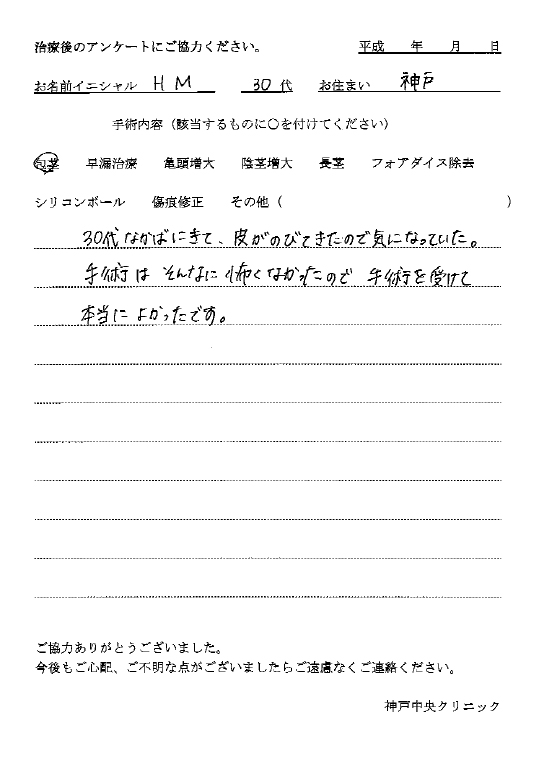 治療後のアンケートにご協力ください。 平成 年 月 日
お名前イニシャル H M 30 代 お住まい 神戸
手術内容(該当するものに○を付けてください)
包茎 早漏治療 亀頭増大 陰茎増大 長茎 フォアダイス除去
シリコンボール 傷痕修正 その他( )
30代なかばにきて、皮がのびてきたので気になっていた。
手術は そんなに怖くなかったので 手術を受けて
本当に よかったです。
ご協力ありがとうございました。
今後もご心配、ご不明な点がございましたらご遠慮なくご連絡ください。
神戸中央クリニック